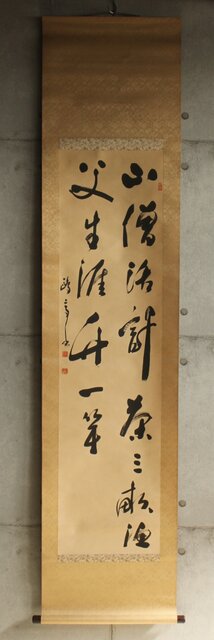 山僧活計茶三畝漁
父生涯竹一竿